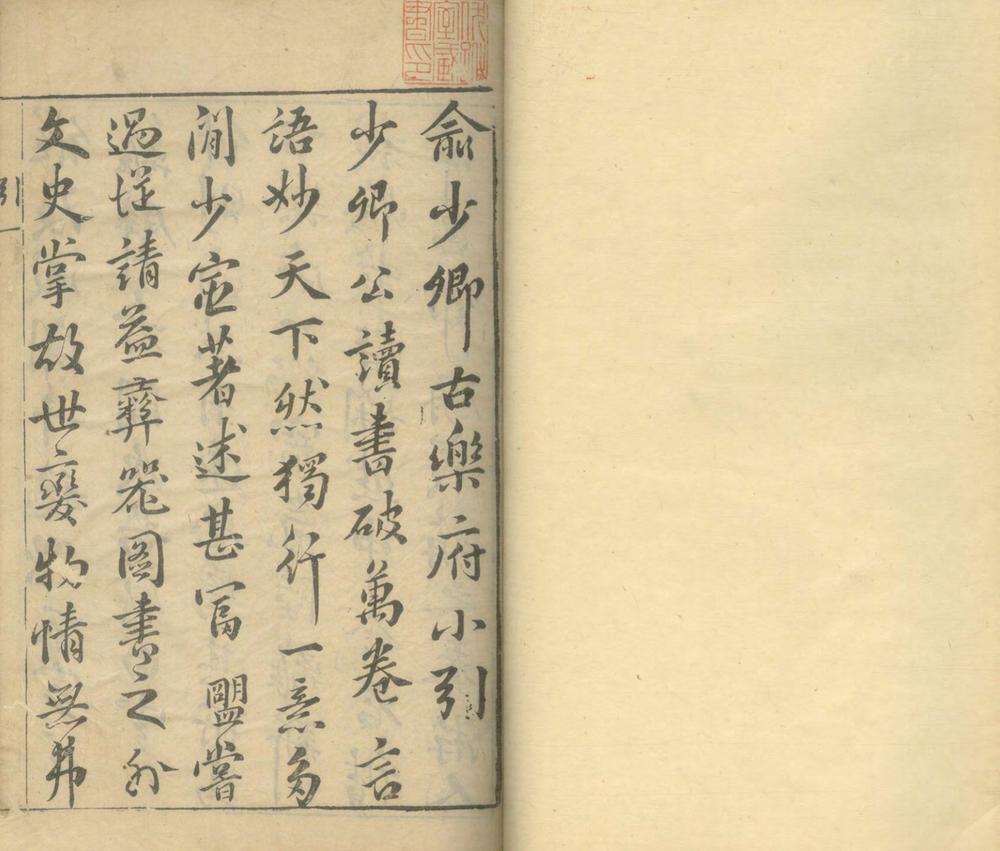 俞少卿古樂府小引
少卿公讀書破萬卷言
語妙天下然獨行一意多
閒少宦著述甚冨盟嘗
過從請益彝器圖書之外
文史掌故世變物情無弗
引
一